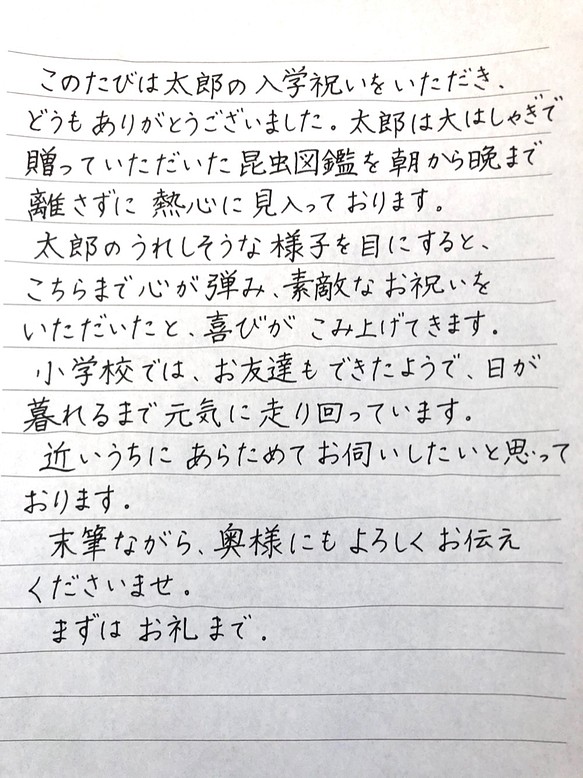 このたびは太郎の入学祝いをいただき、
どうもありがとうございました。太郎は大はしゃぎで
贈っていただいた昆虫図鑑を朝から晩まで
離さずに熱心に見入っております。
太郎のうれしそうな様子を目にすると、
こちらまで心が弾み、素敵なお祝いを
いただいたと、喜びがこみ上げてきます。
小学校では、お友達もできたようで、日が
暮れるまで元気に走り回っています。
近いうちにあらためてお伺いしたいと思って
おります。
末筆ながら、奥様にもよろしくお伝え
くださいませ。
まずはお礼まで。